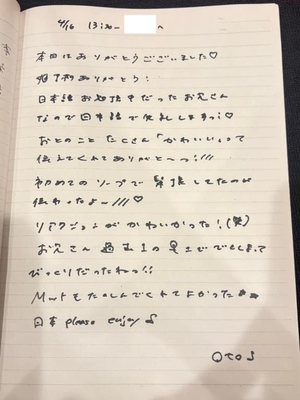 4/16 13:20~ へ
本日はありがとうございました♡
ありがとう!
日本語お勉強中だったお兄さん
なので日本語で失礼しますっ!♡
おとのこと たくさん「かわいい」って
伝えてくれてありがと〜っ!///
初めてのソープで緊張してたのが
伝わったよ〜///♡
リアクションがかわいかった!(笑)
お兄さん 過去1の早さで
びっくりだったわっ!!
Matもたのしんでくれてよかった
日本 please enjoy
Oto